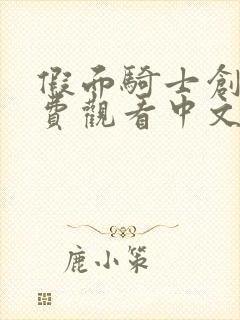 假面騎士創
費觀看中文
鹿小策